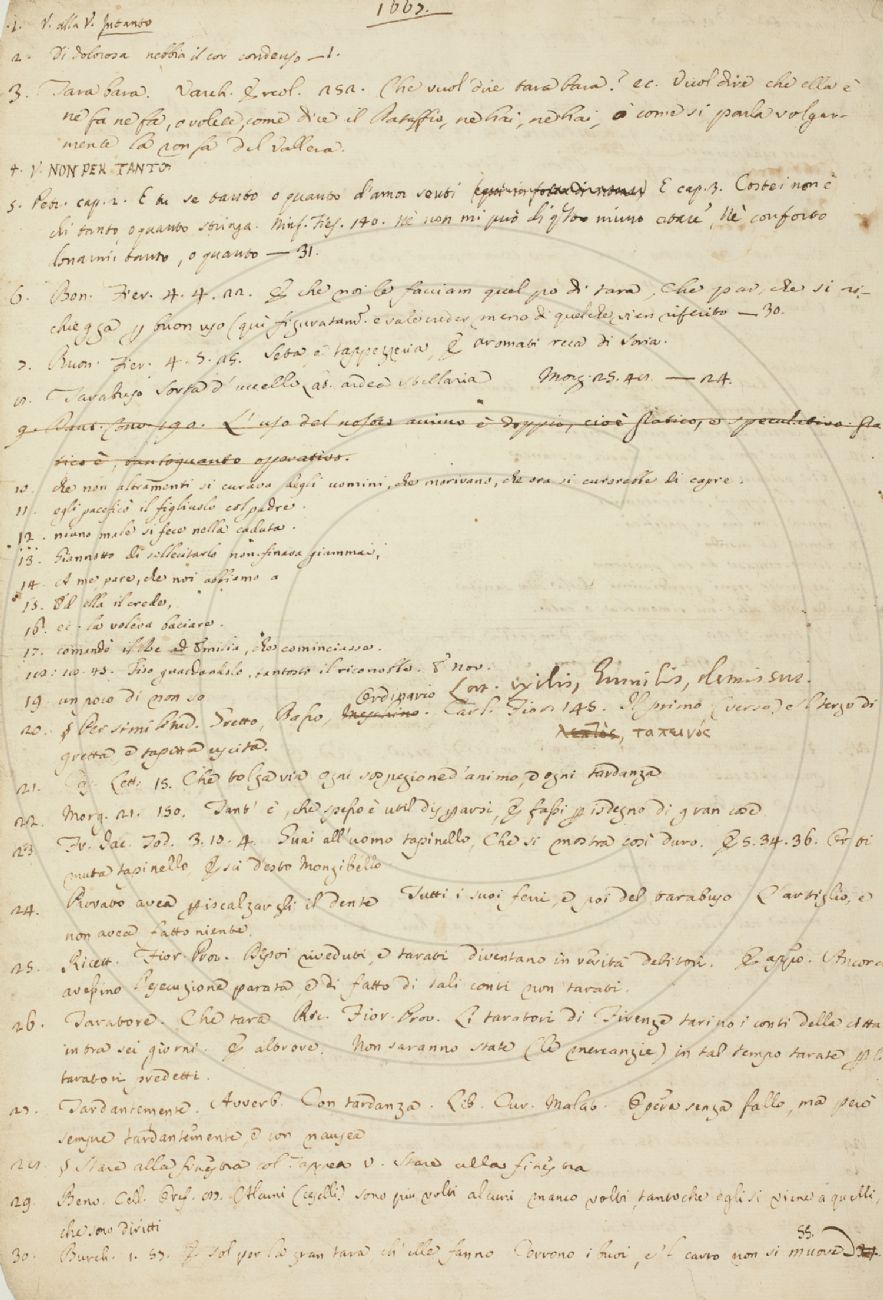 1667.
1. V. alla V. Intanto
2. Di dolorosa nebbia il cor condenso — 1.
3. Tara bara. Varch. Ercol. 252. Che vuol dire tara bara? ec. Vuol dire che ella è
né fa né fa, o volete, come dice il Pataffio, né hai, né hai, o come si parla volgar-
mente la zonfa del Vallera.
4. V. NON PER TANTO
5. Petr. cap. 2. E tu se tanto o quanto d'amor senti E cap. 3. Costei non è
chi tanto, o quanto stringa. Ninf. Fies. 140. Nè non mi può niuno atare, Nè conforto
donarmi tanto, o quanto — 31.
6. Bon. Fier. 4. 4. 22. E che noi le facciam quel po di tara, Che par, che si ri-
chiegga p buon uso (qui figuratam. e vale creder meno di quel che vien riferito — 30.
7. Buon. Fier. 4. 5. 15. Seta, e tappezzeria, E aromati reca di Soria.
8. Tarabuso sorta d'uccello Lat. ardea stellaria Morg. 25. — 24.
9. L'uso del nostro animo è doppio, cioè pratico, e speculativo. Pra
tico è, tantoquanto operativo.
10. che non altramenti si curava degli uomini, che morivano, che ora si curerebbe di capre.
11. egli pacificò il figliuolo col padre.
12. niuno male si fece nella caduta.
13. Giannotto di sollecitarlo non finava giammai,
14. A me pare, che noi abbiamo a
15. Ed ella il crede,
16. ec. la voleva baciare.
17. comandò il Re ad Emilia, che cominciasse.
18. Fiso guardandolo, tantosto il riconobbe. E nov.
19. un poco di non so
20. § Per similitud. Gretto, Basso, Ordinario Lat. exilis, humilis, demissus. Carl. Fior. 145. Il primo (verso) e 'l terzo di
gretta, e tapetta uscita. ταπεινός
21. Lett. 15. Che tolga via ogni sospezione d'animo, e ogni tardanza
22. Morg. 21. 130. Tant' è, che spesso è util disperarsi, E fassi p isdegno di gran cose
23. Fr. Iac. Tod. 3. 10. 4. Guai all'uomo tapinello, Che si mostra così duro. E 5. 34. 36. Or ti
muta tapinello, Esci d'esto Mongibello
24. Provato avea p iscalzargli il dente Tutti i suoi ferri, e poi del tarabuso L'artiglio, e
non avea fatto niente.
25. Ricett. Fior. Prov. Dipoi riveduti, e tarati diventano in verità debitori. E appo. Ancora
avessino l'esecuzione parata e di fatto di tali conti non tarati.
26. Taratore. Che tara Ric. Fior. Prov. Li taratori di Firenze tarino i conti della città
intra sei giorni. E altrove. Non saranno state (le mercanzie) in tal tempo tarate p li
taratori predetti.
27. Tardantemente. Avverb. Con tardanza. Lib. Cur. Malat. Opera senza fallo, ma però
sempre tardantemente, e con nausea
28. § Stare alla finestra col tappeto v. Stare alla finestra
29. Benv. Cell. Oref. Alcuni (ceselli) sono più volti alcuni manco volti, tantoche egli si viene a quelli,
che sono diritti
30. Burch. 1. 57. E sol per la gran tara ch'elle fanno Corrono i buoi, e 'l carro non si muove 55.